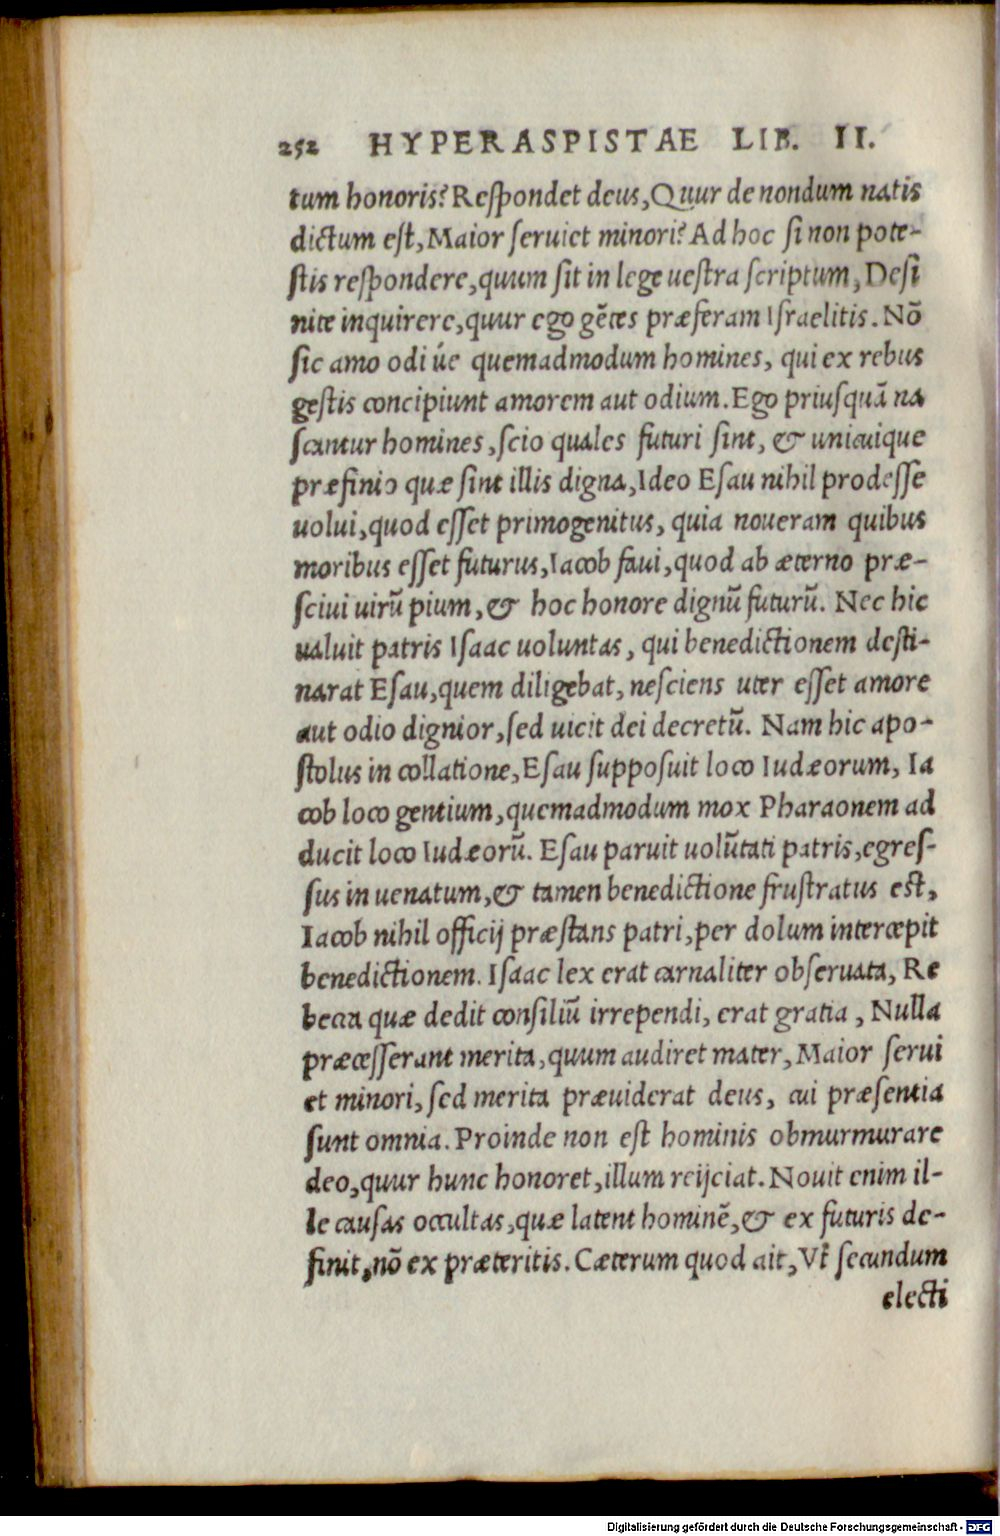 252 HYPERASPISTAE LIB. II.
tum honoris? Reſpondet deus, Quur de nondum natis
dictum eſt, Maior ſeruiet minori? Ad hoc ſi non pote-
ſtis reſpondere, quum ſit in lege ueſtra ſcriptum, Deſi
nite inquirere, quur ego gẽtes præferam Iſraelitis. Nõ
ſic amo odi úe quemadmodum homines, qui ex rebus
geſtis concipiunt amorem aut odium. Ego priuſquã na
ſcantur homines, ſcio quales futuri ſint, & unicuique
præfinio quæ ſint illis digna, Ideo Eſau nihil prodeſſe
uolui, quod eſſet primogenitus, quia noueram quibus
moribus eſſet futurus, Iacob faui, quod ab æterno præ-
ſciui uirũ pium, & hoc honore dignũ futurũ. Nec hic
ualuit patris Iſaac uoluntas, qui benedictionem deſti-
narat Eſau, quem diligebat, neſciens uter eſſet amore
aut odio dignior, ſed uicit dei decretũ. Nam hic apo-
ſtolus in collatione, Eſau ſuppoſuit loco Iudæorum, Ia
cob loco gentium, quemadmodum mox Pharaonem ad
ducit loco Iudæorũ. Eſau paruit uolũtati patris, egreſ-
ſus in uenatum, & tamen benedictione fruſtratus eſt,
Iacob nihil officij præſtans patri, per dolum intercepit
benedictionem. Iſaac lex erat carnaliter obſeruata, Re
becca quæ dedit conſiliũ irrependi, erat gratia, Nulla
præceſſerant merita, quum audiret mater, Maior ſerui
et minori, ſed merita præuiderat deus, cui præſentia
ſunt omnia. Proinde non eſt hominis obmurmurare
deo, quur hunc honoret, illum reijciat. Nouit enim il-
le cauſas occultas, quæ latent hominẽ, & ex futuris de-
finit, nõ ex præteritis. Cæterum quod ait, Vt ſecundum
electi
Digitalisierung gefördert durch die Deutsche Forschungsgemeinschaft - DFG